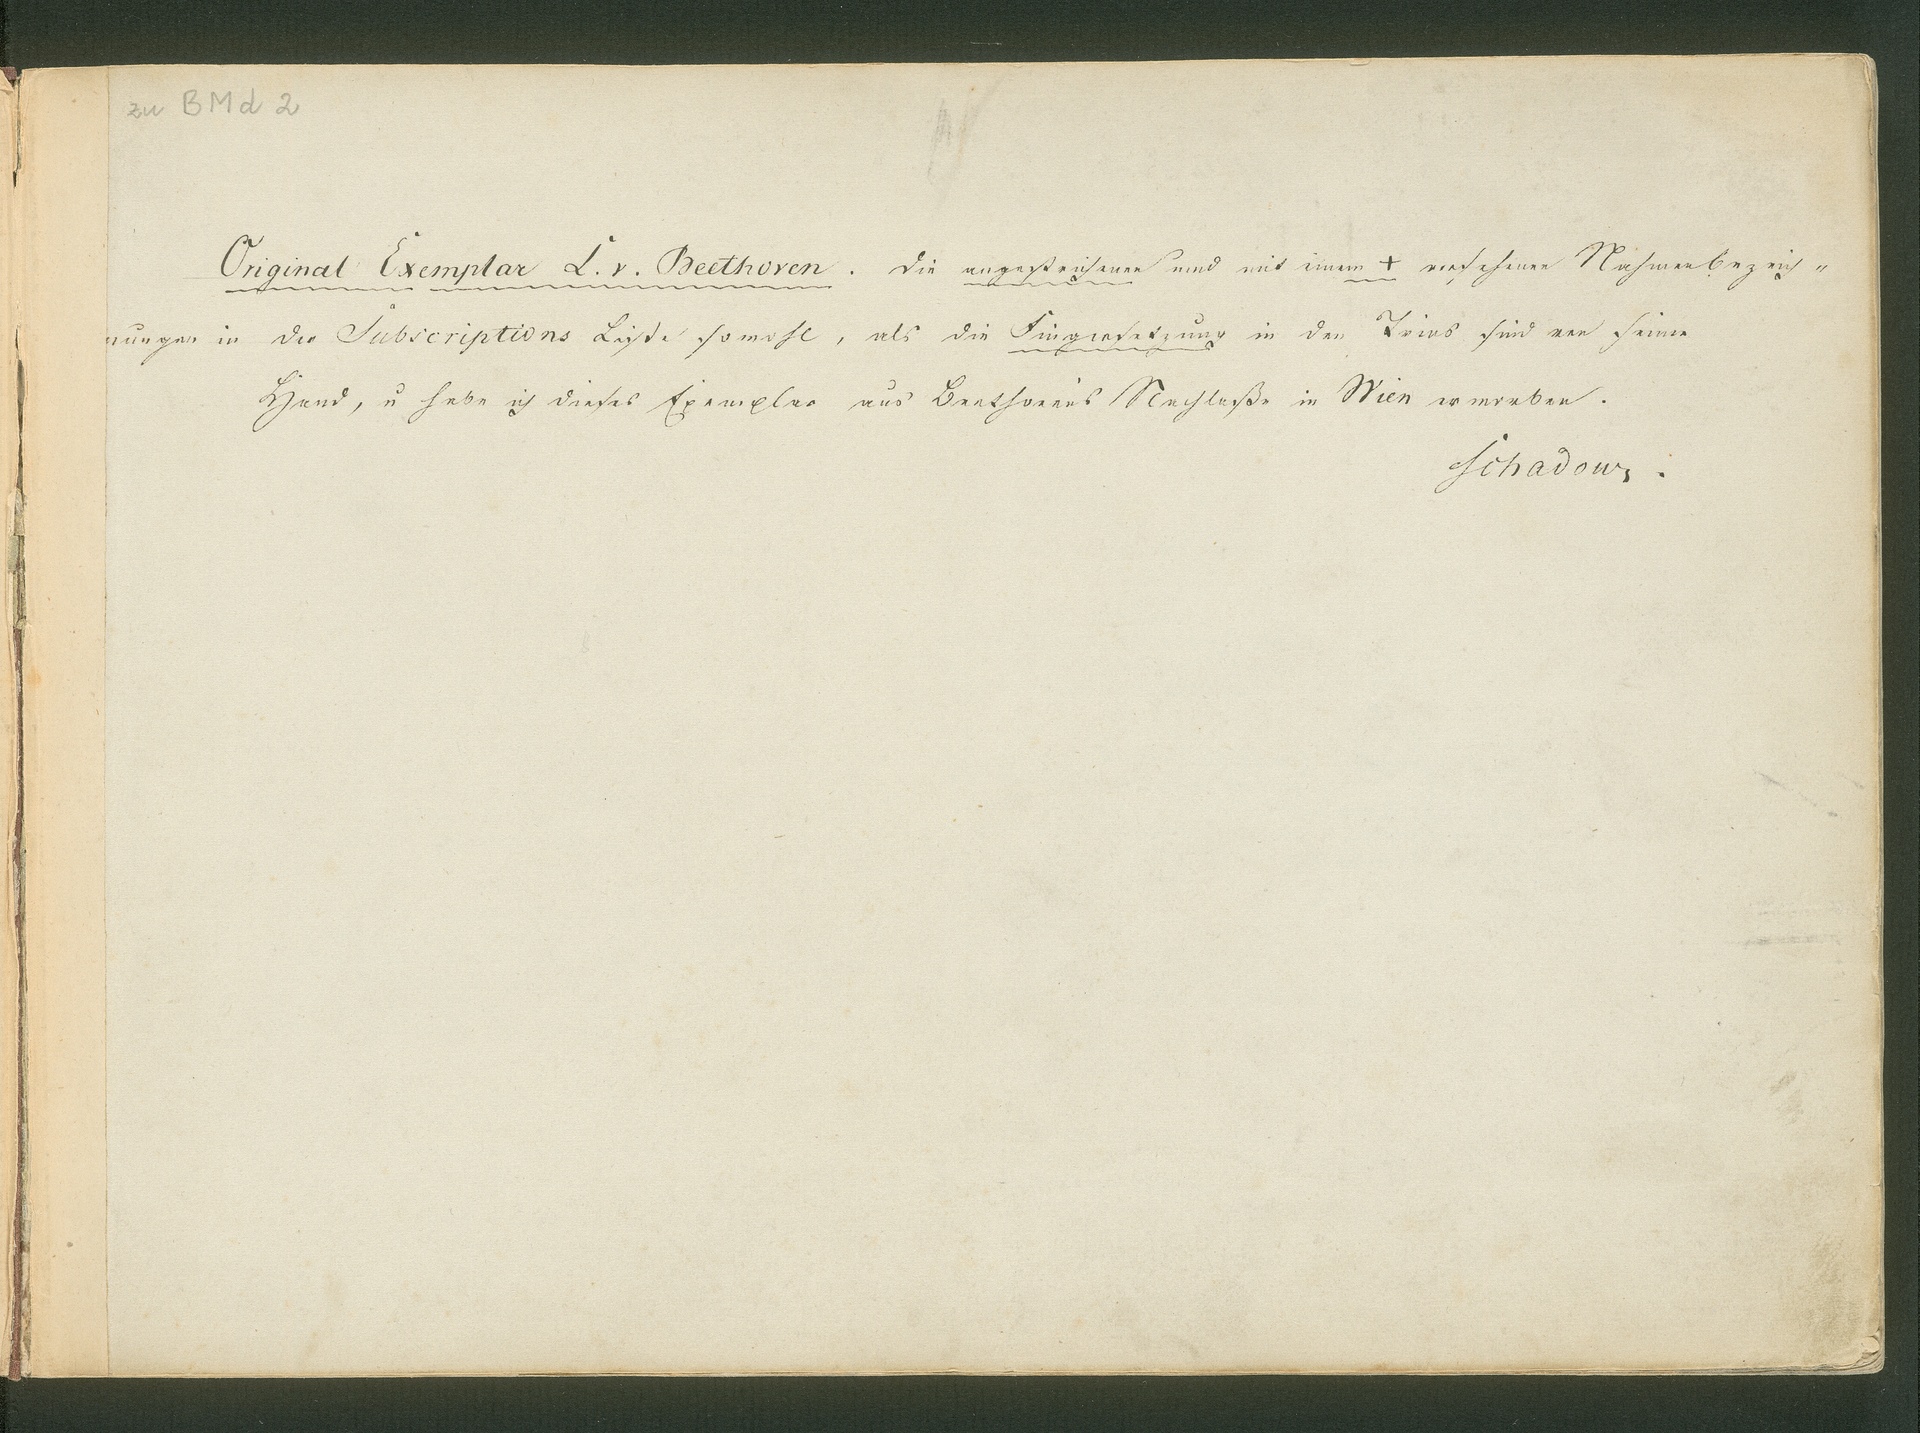 zu BMd 2
Original Exemplar L. v. Beethoven. Die angestrichenen und mit einem + versehenen Nahmenbezeich„
nungen in der Subscriptions Liste sowohl, als die Fingersetzung in den Trios sind von seiner
Hand, u habe ich dieses Exemplar aus Beethovens Nachlaße in Wien erworben.
Schadow.